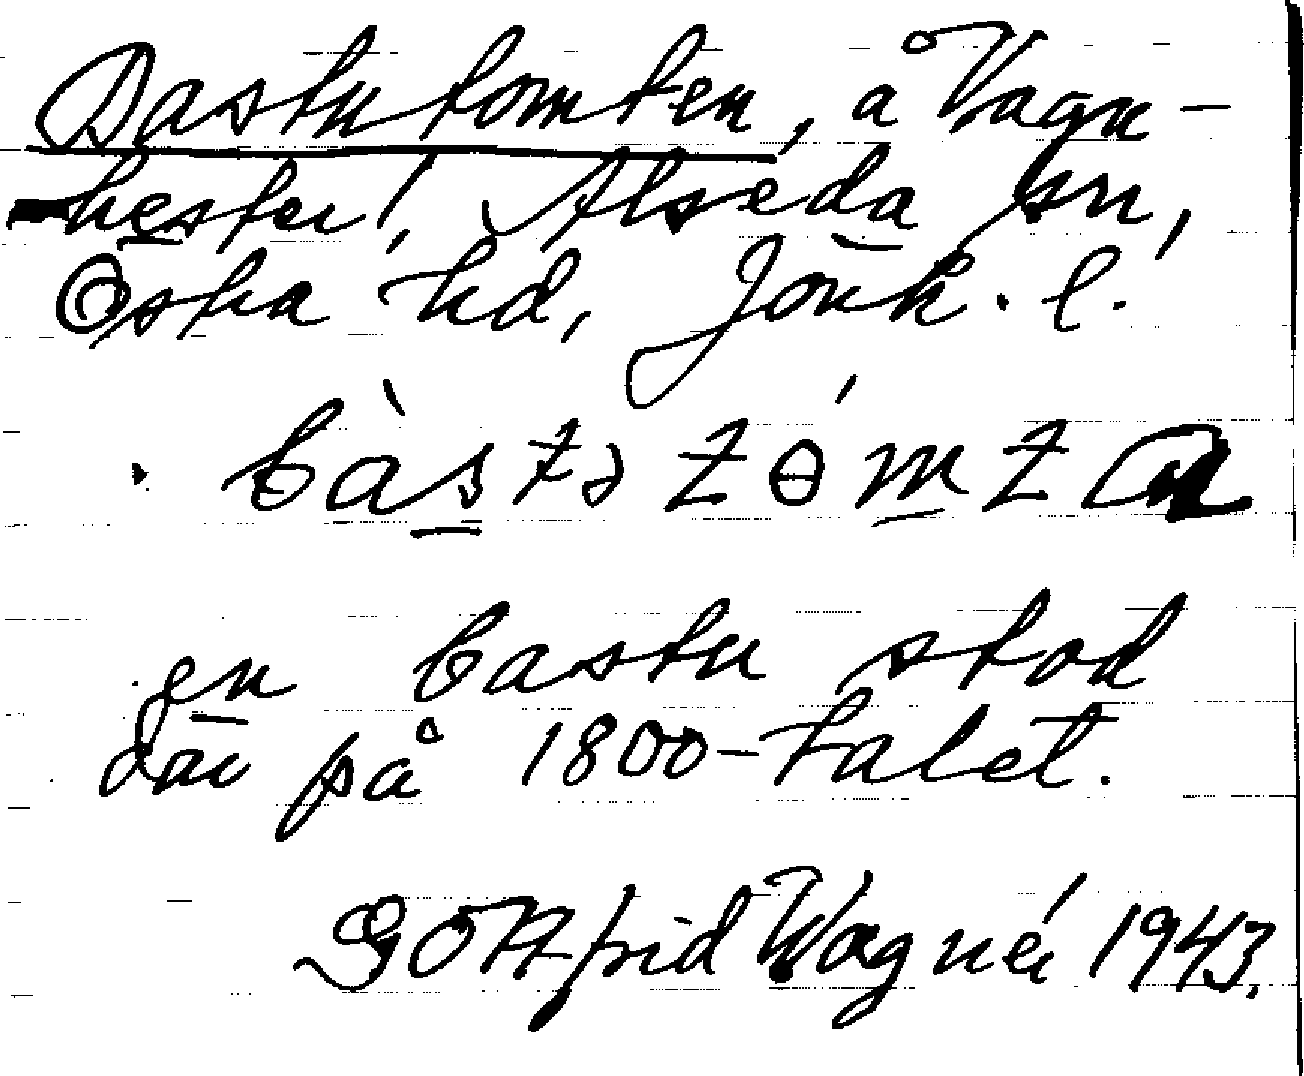 Bastutomten, å Vagn-
hester, Alseda sn,
Östra hd, Jönk. l.
bàstɘtɵ́mta
en bastu stod
där på 1800-talet.
Gottfrid Wagnér 1943.